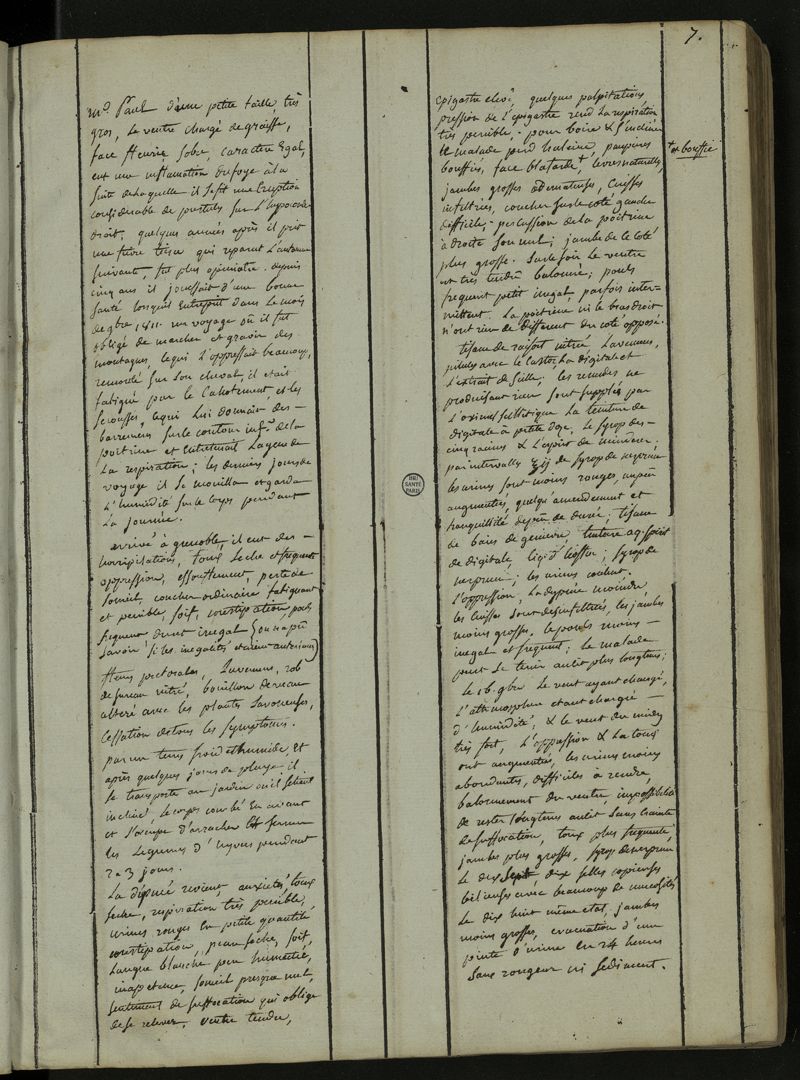 7.
Mr. Paul d'une petite taille, très
gros, le ventre chargé de graisse,
face fleurie, sobre, caractère égal,
eut une inflamation du foye à la
suite de laquelle il se fit une éruption
considérable de pustules sur l'hypocondre
droit; quelques années après il prit
une fievre tierce qui reparut l'automne
suivant, fut plus opiniatre. depuis
cinq ans il jouissait d'une bonne
santé lorsquil entreprit dans le mois
de 9bre 1811. un voyage où il fut
obligé de marcher et gravir des
montagnes, lequi l'oppressait beaucoup,
remonté sur son cheval, il était
fatigué par le cahotement, et les
secousses, lequi lui donnait des
sur le contour infr. de la
poitrine et entretenait la gene de
la respiration; les derniers jours de
voyage il se mouilla et garda
l'humidité sur le corps pendant
la journée.
arrivé à grenoble, il eut des
horripilations, toux seche et frequente
oppression, essouflement, perte de
sommeil, coucher ordinaire fatiguant
et penible, soif, constipation, pouls
frequent dur et inegal (on n'a pu
savoir si les inegalités etaient anterieures)
fleurs pectorales, rob
de sureau nitré, bouillon de veau
alteré avec les plantes savoneuses,
cessation de tous les symptomes.
par un tems froid et humide, et
après quelques jours de pluye il
se transporte au jardin où il se tient
incliné, le corps courbé en avant
et s'occupe d'arracher et serrer
les legumes d'hyver pendant
2 a 3 jours.
La dispnée revient, anxieté, toux
seche, respiration très penible,
urines rouges en petite quantité,
constipation, peau seche, soif,
langue blanche peu humectée,
inapetence, sommeil presque nul,
sentiment de suffocation qui oblige
de se relever, ventre tendu,
epigastre elevé, quelques palpitations
pression de l'epigastre rend la respiration
très penible; pour boire & s'incliner
le malade perd haleine, paupieres
bouffies, face blafarde +, levres naturelles,
+ et bouffie
jambes grosses oedematiées, cuisses
infiltrées, coucher sur le coté gauche
difficile, percussion de la poitrine
à droite son nul; jambe de ce coté
plus grosse. Sur le soir le ventre
est très tendu balonné; pouls
frequent petit inegal, parfois inter=
mittent. La poitrine ni le bras droit
n'ont rien de different du coté opposé.
tisane de raifort nitrée
pilules avec le castor, la digitale et
l'extrait de scille; les remedes ne
produisant rien sont suppléés par
l'oximel scillitique la teinture de
digitale à petite dose, le syrop des
cinq racines & l'esprit de
par intervalles ʒij de syrop de nerprun
les urines sont moins rouges, un peu
augmentées, quelqu'amendement et
tranquillité de peu de durée; tisane
de baies de genievre, teinture aq. spirit
de digitale, liq. d'hoffm; syrop de
nerprun; les urines coulent.
L'oppression, la dyspnée moindre
les cuisses sont desinfiltrées, les jambes
moins grosses, le pouls moins
inegal et frequent; le malade
peut se tenir au lit plus longtems;
le 16. 9bre le vent ayant changé,
l'athmosphere etant chargée
d'humidité, & le vent du midy
très fort, l'oppression & la toux
ont augmentées, les urines moins
abondantes, difficiles à rendre,
balonnement du ventre, impossibilité
de rester longtems au lit sans crainte
de suffocation, toux plus frequente,
jambes plus grosses, syrop de nerprun
le dix sept dix selles copieuses
bilieuses avec beaucoup de mucosités
le dix huit même etat, jambes
moins grosses, evacuation d'une
pinte d'urine en 24 heures
sans rougeur ni sediment.
BIU
SANTE
PARIS